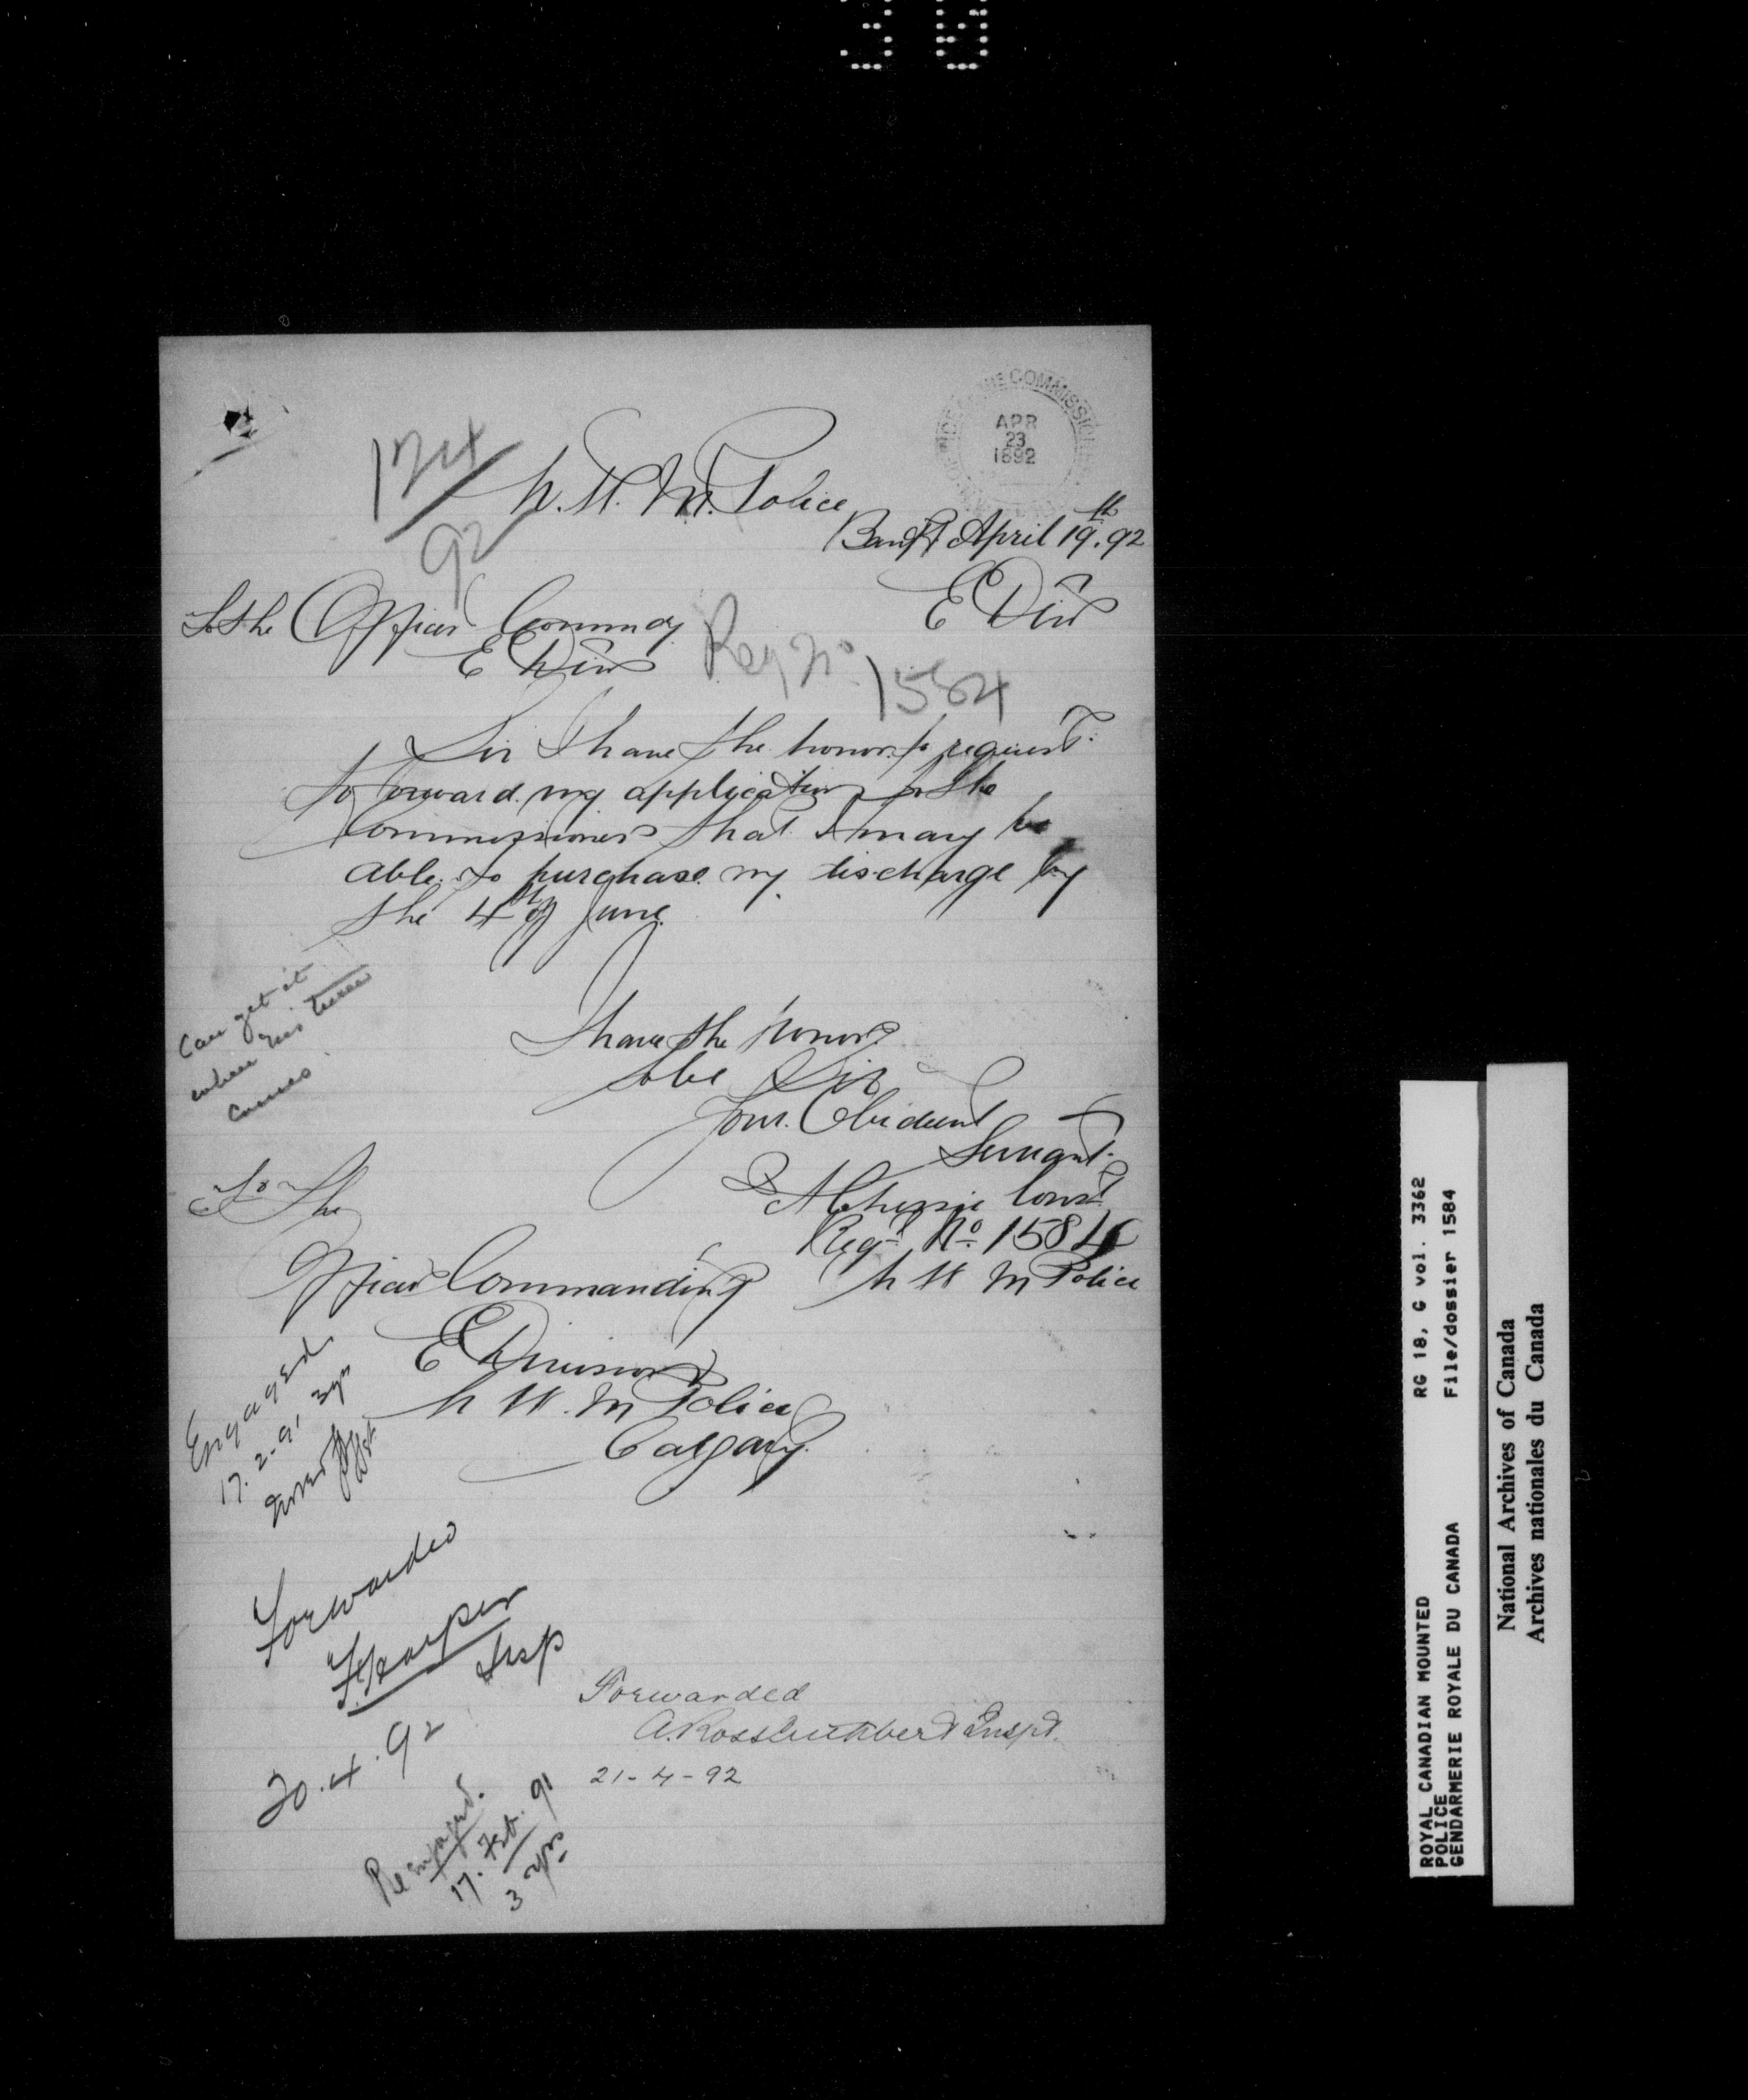 30
COMMISSIONER
APR
23
1892
174
92
N. W. M. Police
Banff April 19th. 92
E Divn
To the Officer Commdg
E Divn
Reg No. 1584
Sir I have the honor to request
to forward my application to the
Commissioner that I may be
able to purchase my discharge by
the 4th of June
I have the honor
to be Sir
Your Obident
Servant
Const
Regt No. 1584
N W M Police
Can get it
when his turn
comes
To The
Officer Commanding
E Division
N W. M Police
Calgary.
Engaged
17. 2. 91 3 yrs
Forwarded
Harper
Insp
20. 4. 92
Forwarded
A. Ross Cuthbert Inspt.
21-4-92
Re engaged.
17. Feb. 91
3 yrs
ROYAL CANADIAN MOUNTED
POLICE
GENDARMERIE ROYALE DU CANADA
RG 18, G vol. 3362
File/dossier 1584
National Archives of Canada
Archives nationales du Canada